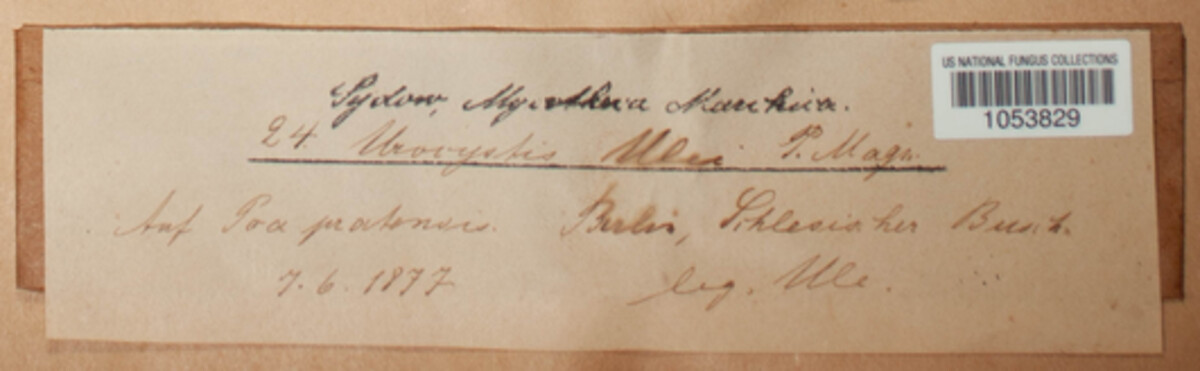 US NATIONAL FUNGUS COLLECTIONS
1053829
Sydow, Mycotheca Marchica.
24 Urocystis Ulei P. Magn.
Auf Poa pratensis. Berlin, Schlesischer Busch.
7. 6. 1877 leg. Ule.